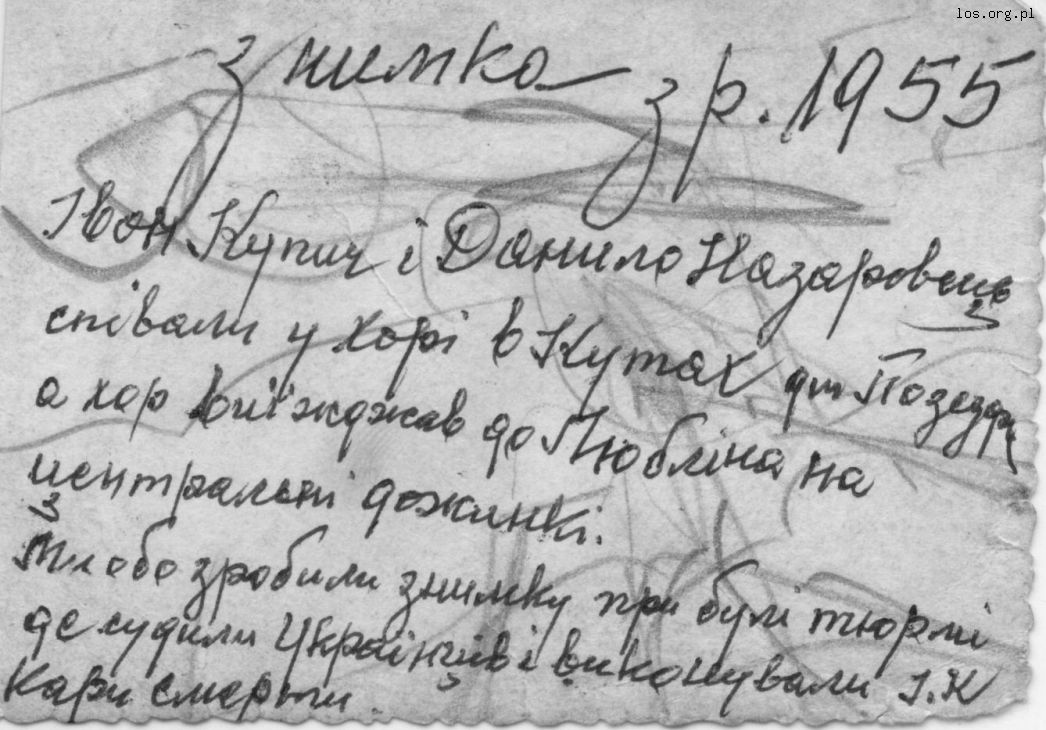 los.org.pl
Знимка з р. 1955
Іван Купич і Данило Назаровець
співали у хорі в Кутах дт Позездр
а хор виїжджав до Любліна на
центральні дожинкі.
Ми обо зробили знимку при булі тюрмі
де судили Українців і виконували І.К
Кари смерти.